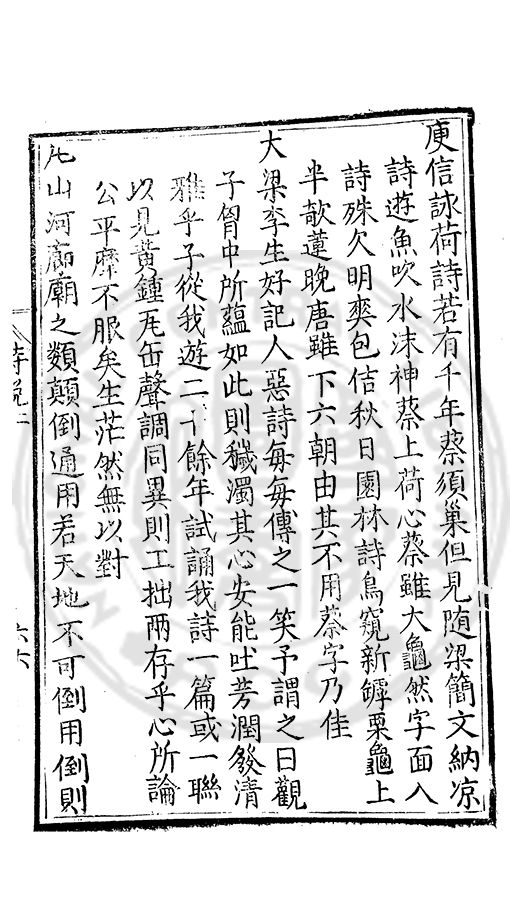 庾信詠荷詩若有千年蔡須巢但見随梁簡文納凉
詩遊魚吹水沫神蔡上荷心蔡雖大龜然字面入
詩殊欠明爽包佶秋日園林詩鳥窺新罅栗龜上
半欹蓮晚唐雖下六朝由其不用蔡字乃佳
大梁李生好記人惡詩每每傳之一笑予謂之曰觀
子胷中所蘊如此則穢濁其心安能吐芳潤發清
雅乎子從我遊二十餘年試誦我詩一篇或一聯
以見黃鍾瓦缶聲調同異則工拙兩存乎心所論
公平靡不服矣生茫然無以對
凡山河廊廟之類顛倒通用若天地不可倒用倒則
詩説二
六六